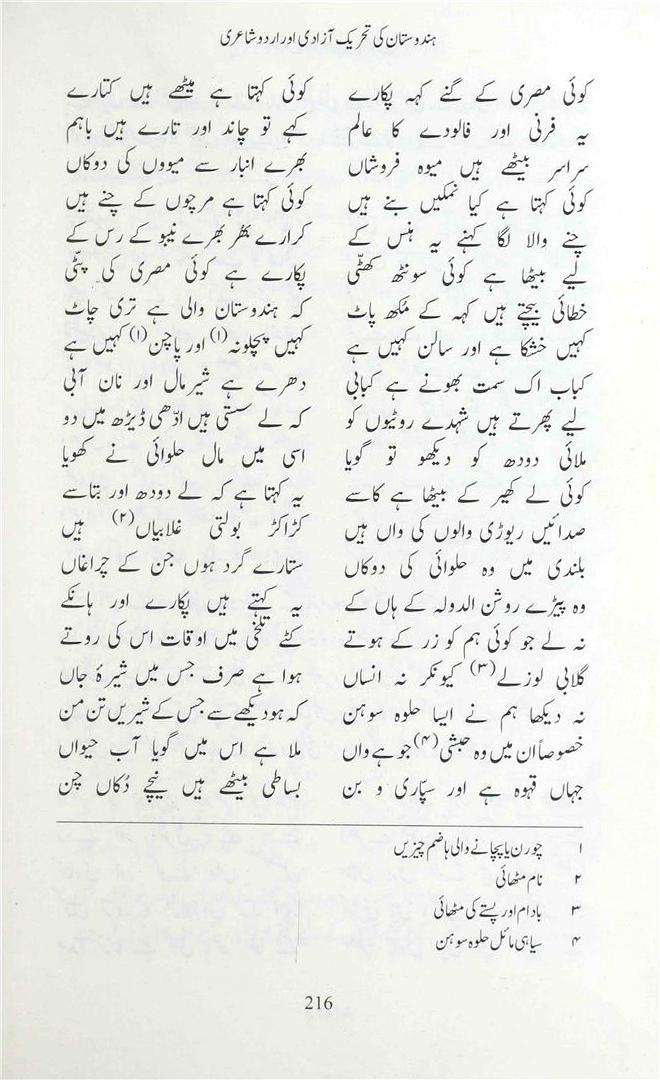 ہندوستان کی تحریک آزادی اور اردو شاعری
کوئی مصری کے گنے کہہ پکارے کوئی کہتا ہے میٹھے ہیں کتارے
یہ فرنی اور فالودے کا عالم کہے تو چاند اور تارے ہیں باہم
سراسر بیٹھے ہیں میوہ فروشاں بھرے انبار سے میووں کی دوکاں
کوئی کہتا ہے کیا نمکیں بنے ہیں کوئی کہتا ہے مرچوں کے چنے ہیں
چنے والا لگا کہنے یہ ہنس کے کرارے بھُربھرے نیبو کے رس کے
لیے بیٹھا ہے کوئی سونٹھ کھٹّی پکارے ہے کوئی مصری کی پٹّی
خطائی بیچتے ہیں کہہ کے مُکھ پاٹ کہ ہندوستان والی ہے تری چاٹ
کہیں خشکا ہے اور سالن کہیں ہے کہیں پچلونہ(۱) اور پاچن(۱) کہیں ہے
کباب اک سمت بھونے ہے کبابی دھرے ہے شیرمال اور نان آبی
لیے پھرتے ہیں شہدے روٹیوں کو کہ لے سستی ہیں ادّھی ڈیڑھ میں دو
ملائی دودھ کو دیکھو تو گویا اسی میں مال حلوائی نے کھویا
کوئی لے کھیر کے بیٹھا ہے کاسے یہ کہتا ہے کہ لے دودھ اور بتاسے
صدائیں ریوڑی والوں کی واں ہیں کڑاکڑ بولتی غلابیاں(۲) ہیں
بلندی میں وہ حلوائی کی دوکاں ستارے گرد ہوں جن کے چراغاں
وہ پیڑے روشن الدولہ کے ہاں کے یہ کہتے ہیں پکارے اور ہانکے
نہ لے جو کوئی ہم کو زر کے ہوتے کٹے تلخی میں اوقات اس کی روتے
گلابی لوزلے(۳) کیونکر نہ انساں ہوا ہے صرف جس میں شیرۂ جاں
نہ دیکھا ہم نے ایسا حلوہ سوہن کہ ہو دیکھے سے جس کے شیریں تن من
خصوصاً ان میں وہ حبشی(۴) جو ہے واں ملا ہے اس میں گویا آب حیواں
جہاں قہوہ ہے اور سپّاری و بن بساطی بیٹھے ہیں نیچے دُکاں چن
۱ چورن یا پچانے والی ہاضم چیزیں
۲ نام مٹھائی
۳ بادام اور پستے کی مٹھائی
۴ سیاہی مائل حلوہ سوہن
216